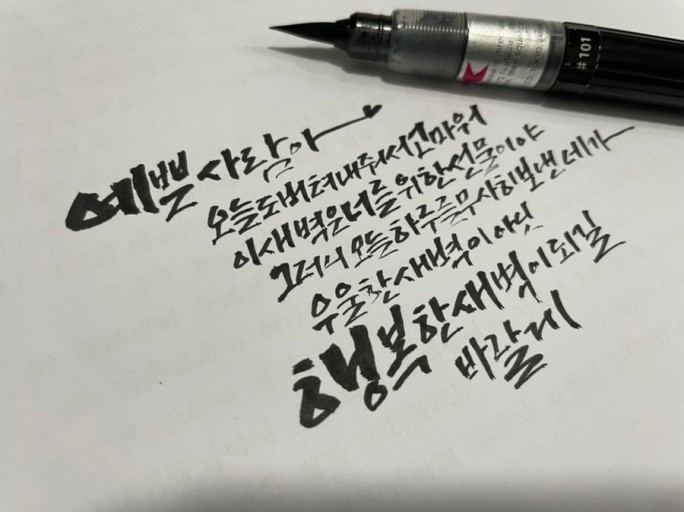 예쁜 사람아
오늘도 버텨내줘서 고마워
이 새벽은 너를 위한 선물이야
그러니 오늘 하루를 무사히 보낸 네가
우울한 새벽이 아닌
행복한 새벽이 되길
바랄게
#101